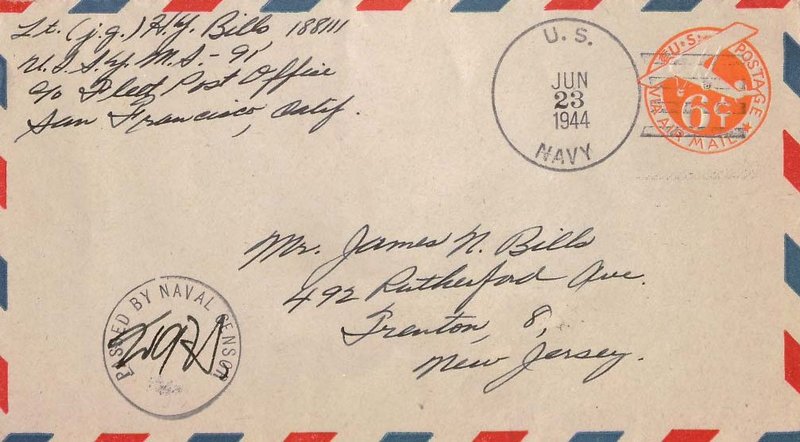 Lt. (j.g.) H.Y. Bills 188111
U.S.S. Y.M.S.-91,
c/o Fleet Post Office
San Francisco, Calif.
U. S.
JUN
23
1944
NAVY
U.S. POSTAGE
6¢
VIA AIR MAIL
Mr. James N. Bills
492 Rutherford Ave.
Trenton, 8,
New Jersey.
PASSED BY NAVAL CENSOR